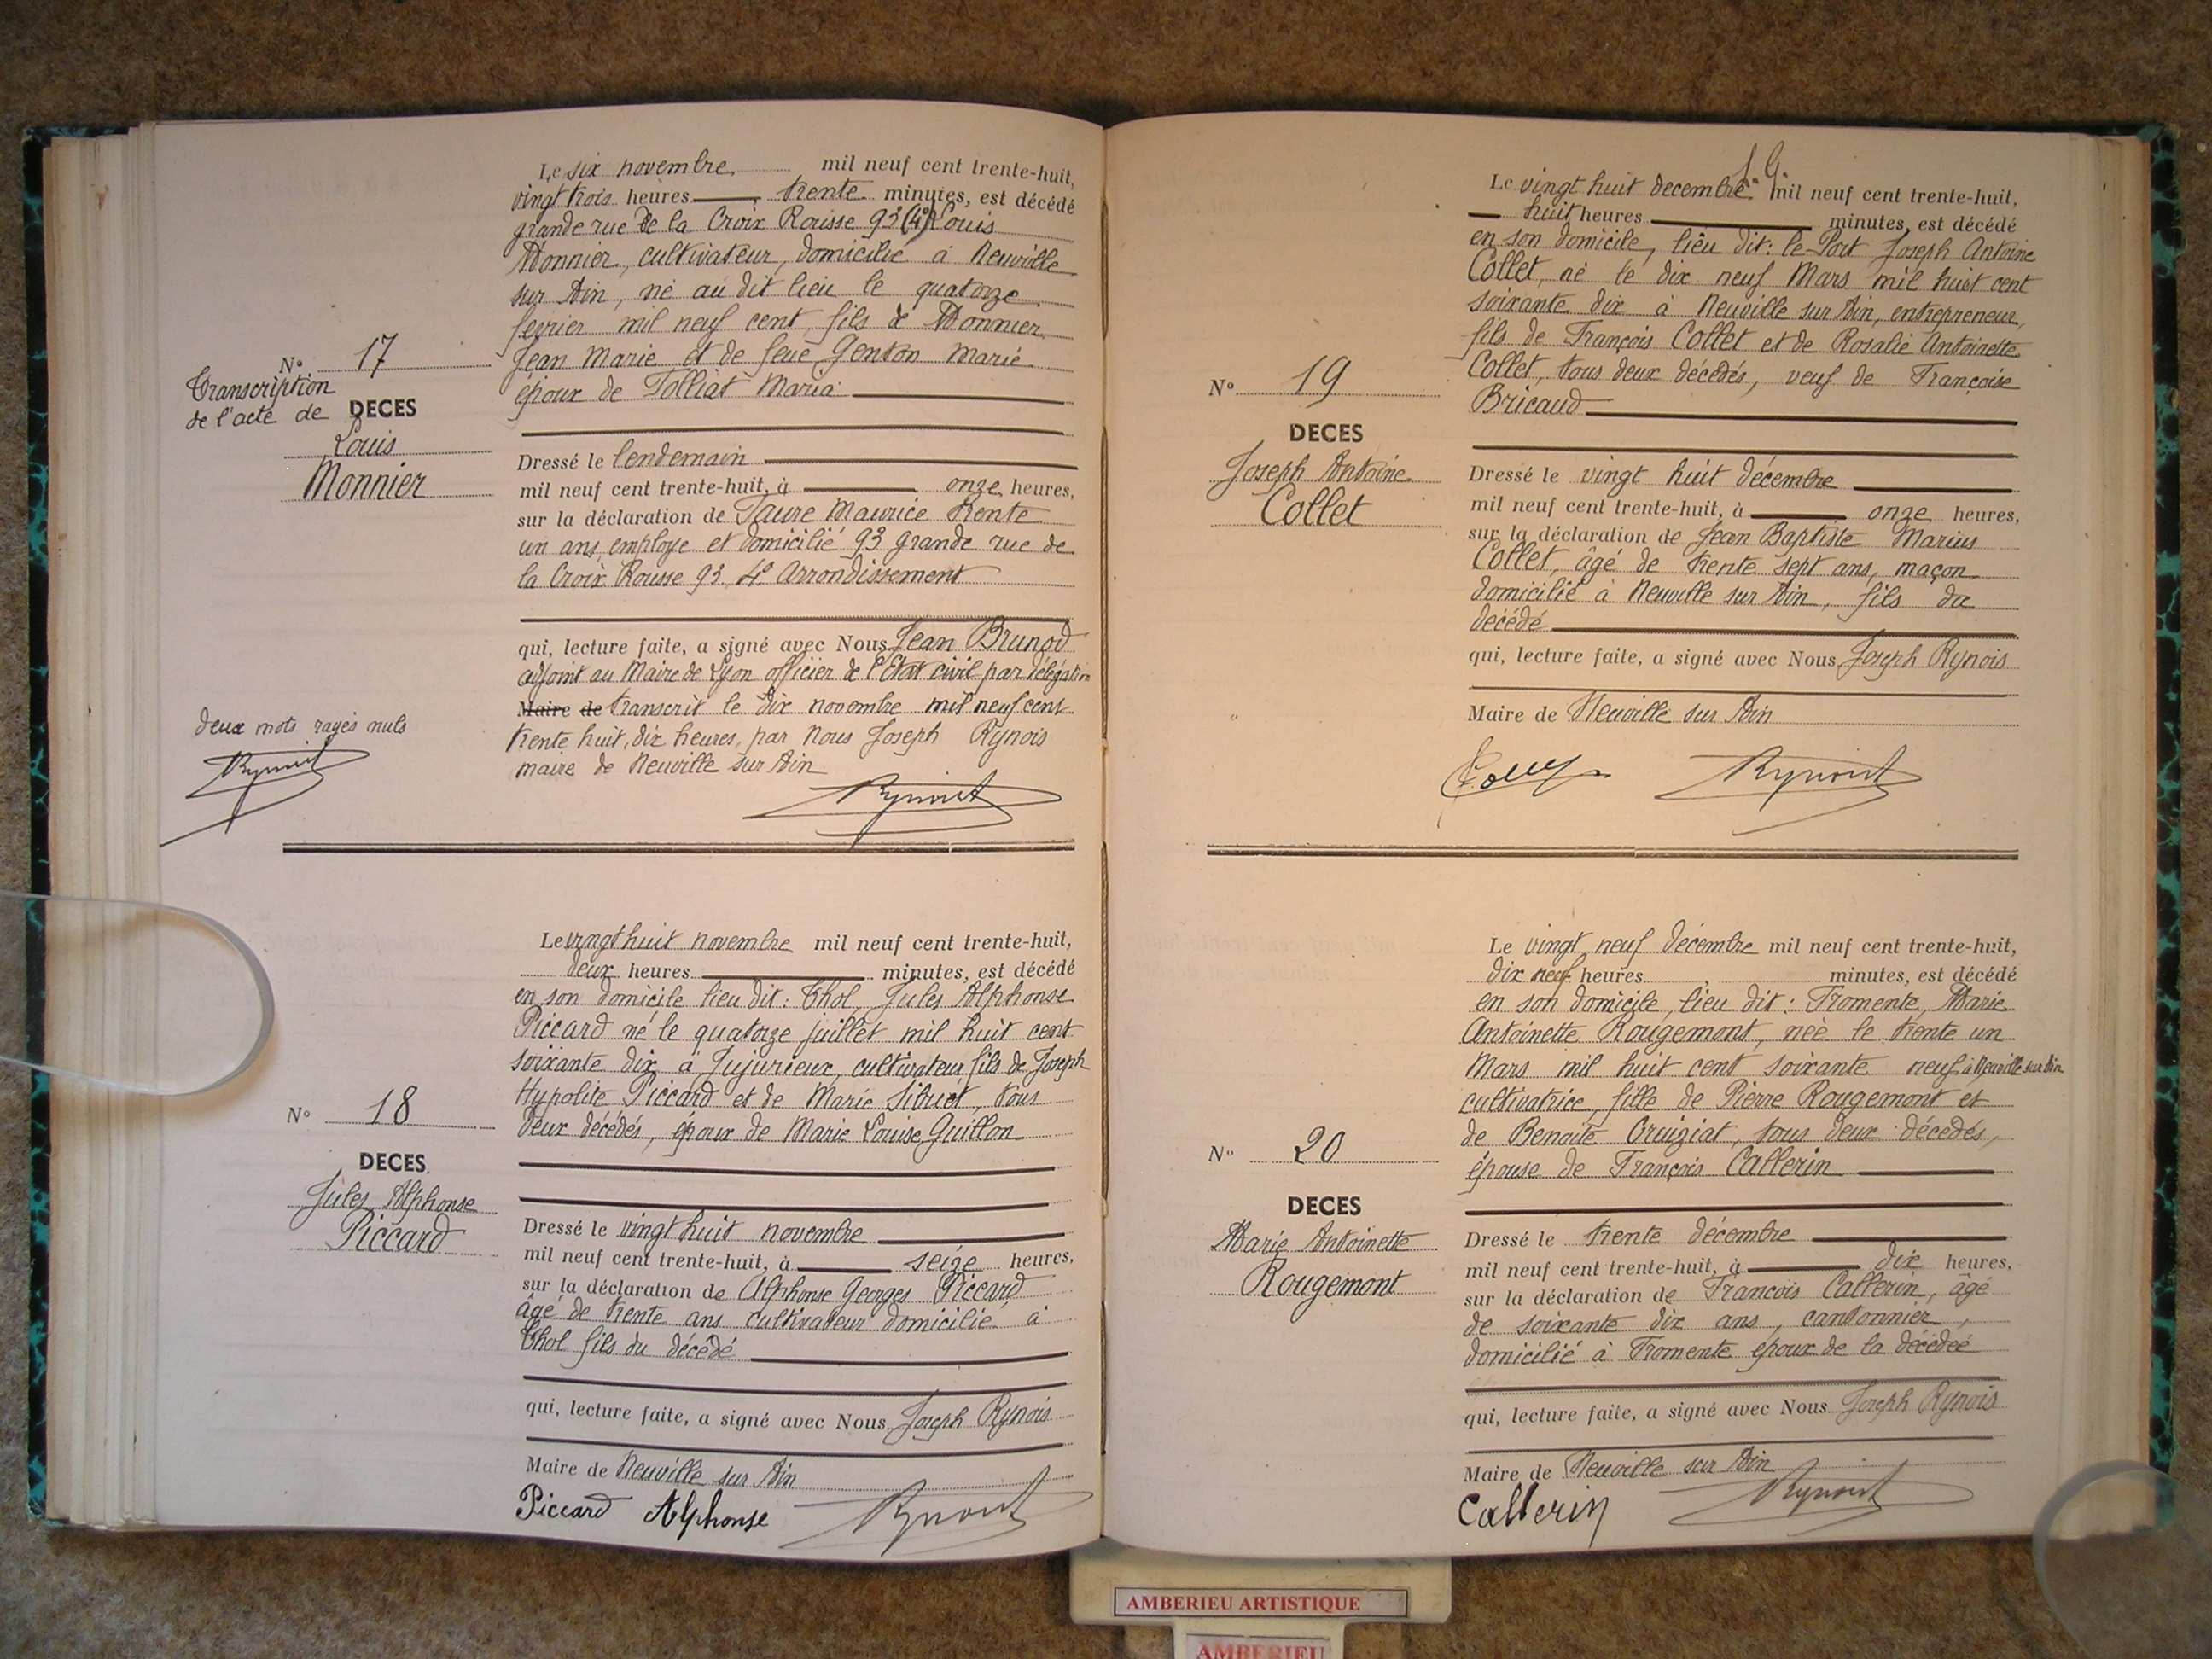 Le six novembre mil neuf cent trente-huit,
vingt trois heures trente minutes, est décédé
grande rue de la Croix Rousse 93 (4e) Louis
Monnier, cultivateur, domicilié à Neuville
sur Ain, né au dit lieu le quatorze
fevrier mil neuf cent, fils de Monnier
Jean Marie et de feue Genton Marie
époux de Tolliat Maria
N° 17
Transcription
de l'acte de DECES
Louis
Monnier
Dressé le lendemain
mil neuf cent trente-huit, à onze heures,
sur la déclaration de Faure Maurice trente
un ans, employe et domicilié 93 grande rue de
la Croix Rousse 93 4e Arrondissement
qui, lecture faite, a signé avec Nous Jean Brunod
adjoint au Maire de Lyon officier de l'Etat civil par délégation
Maire de transcrit le dix novembre mil neuf cent
trente huit, dix heures, par Nous Joseph Rynois
maire de Neuville sur Ain
deux mots rayés nuls
Rynois
Rynois
Le vingt huit novembre mil neuf cent trente-huit,
deux heures minutes, est décédé
en son domicile lieu dit: Thol, Jules Alphonse
Piccard né le quatorze juillet mil huit cent
soixante dix à Jujurieux, cultivateur fils de Joseph
Hypolite Piccard et de Marie Sitriet, tous
deux décédés, époux de Marie Louise Guillon
N° 18
DECES
Jules Alphonse
Piccard
Dressé le vingt huit novembre
mil neuf cent trente-huit, à seize heures,
sur la déclaration de Alphonse Georges Piccard
agé de trente ans cultivateur domicilié à
Thol fils du décédé
qui, lecture faite, a signé avec Nous Joseph Rynois
Maire de Neuville sur Ain
Piccard Alphonse Rynois
Le vingt huit decembre mil neuf cent trente-huit,
huit heures minutes, est décédé
en son domicile, lieu dit: le Port Joseph Antoine
Collet, né le dix neuf Mars mil huit cent
soixante dix à Neuville sur Ain, entrepreneur,
fils de François Collet et de Rosalie Antoinette
Collet, tous deux décédés, veuf de Françoise
Bricaud
N° 19
DECES
Joseph Antoine
Collet
Dressé le vingt huit décembre
mil neuf cent trente-huit, à onze heures,
sur la déclaration de Jean Baptiste Marius
Collet, âgé de trente sept ans, maçon
domicilié à Neuville sur Ain, fils du
décédé
qui, lecture faite, a signé avec Nous Joseph Rynois
Maire de Neuville sur Ain
Rynois
Le vingt neuf décembre mil neuf cent trente-huit,
dix neuf heures minutes, est décédé
en son domicile, lieu dit: Fromente, Marie
Antoinette Rougemont, née le trente un
Mars mil huit cent soixante neuf à Neuville sur Ain
cultivatrice, fille de Pierre Rougemont et
de Benoite Cruiziat, tous deux décédés,
épouse de François Callerin
N° 20
DECES
Marie Antoinette
Rougemont
Dressé le trente décembre
mil neuf cent trente-huit, à dix heures,
sur la déclaration de François Callerin, âgé
de soixante dix ans, cantonnier,
domicilié à Fromente époux de la décédée
qui, lecture faite, a signé avec Nous Joseph Rynois
Maire de Neuville sur Ain
Callerin Rynois
AMBERIEU ARTISTIQUE
AMBERIEU